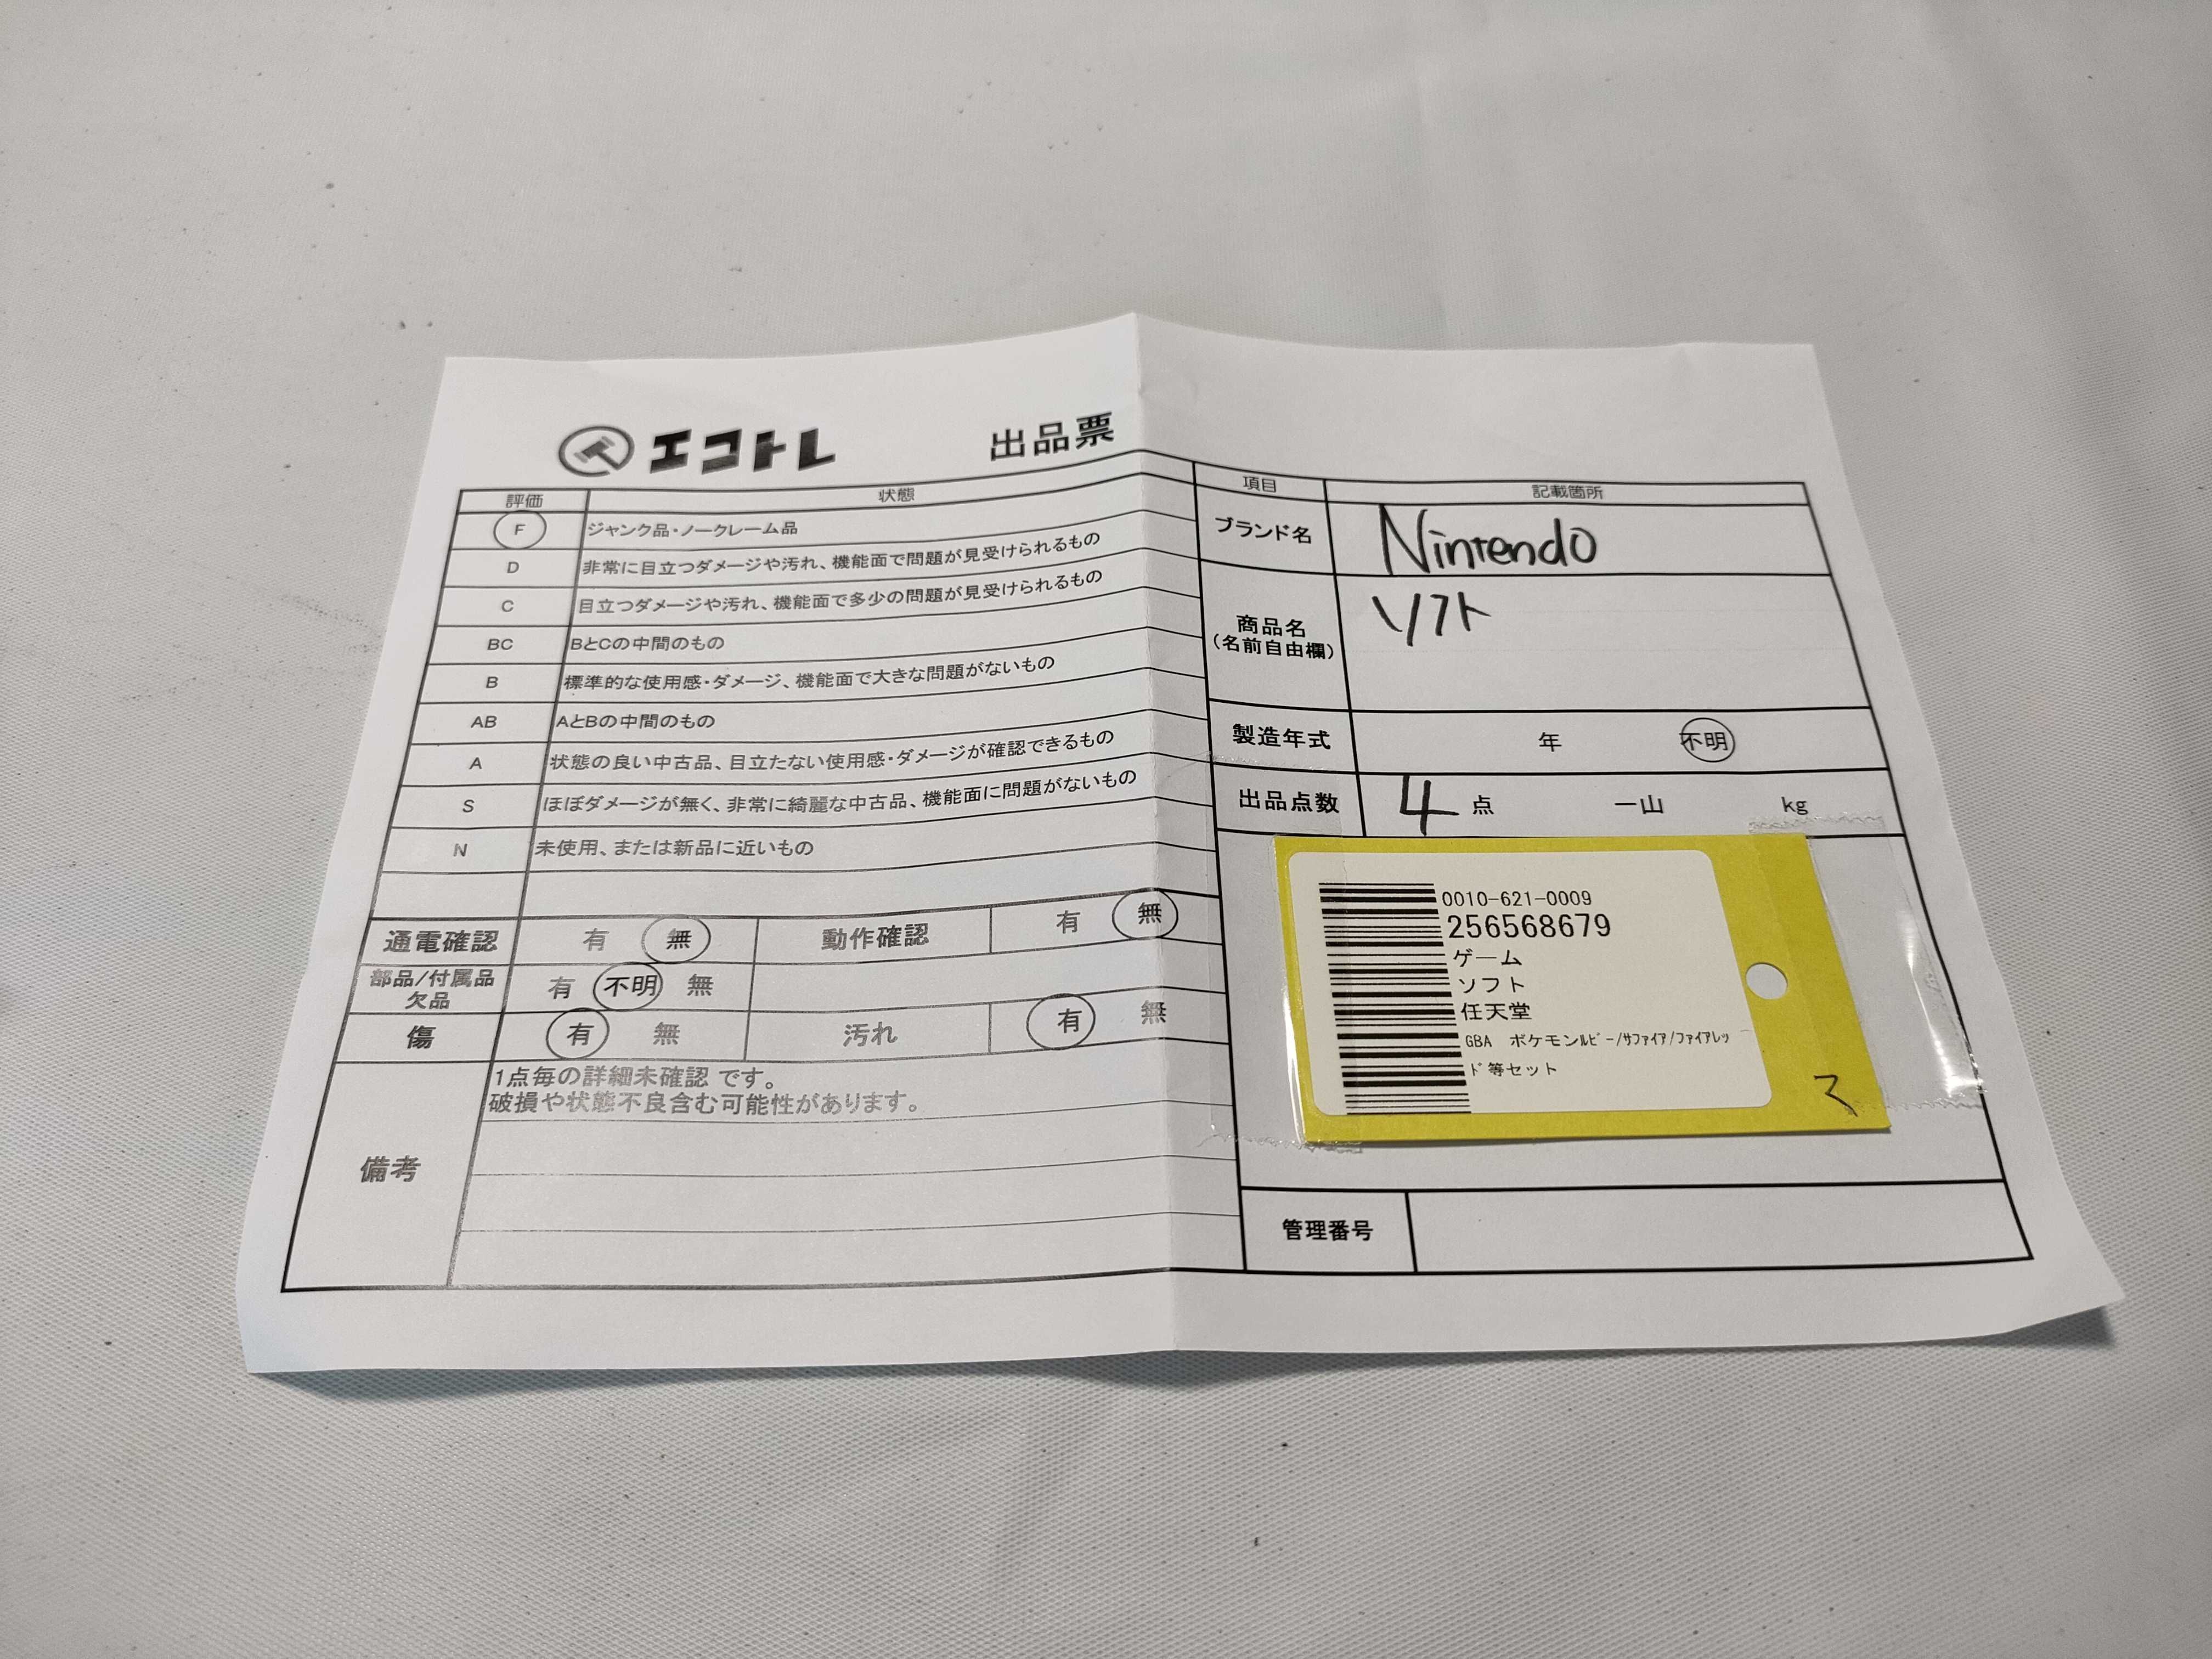 エコトレ 出品票
評価 状態
F ジャンク品・ノークレーム品
D 非常に目立つダメージや汚れ、機能面で問題が見受けられるもの
C 目立つダメージや汚れ、機能面で多少の問題が見受けられるもの
BC BとCの中間のもの
B 標準的な使用感・ダメージ、機能面で大きな問題がないもの
AB AとBの中間のもの
A 状態の良い中古品、目立たない使用感・ダメージが確認できるもの
S ほぼダメージが無く、非常に綺麗な中古品、機能面に問題がないもの
N 未使用、または新品に近いもの
通電確認 有 無 動作確認 有 無
部品/付属品 有 不明 無
欠品
傷 有 無 汚れ 有 無
備考
1点毎の詳細未確認 です。
破損や状態不良含む可能性があります。
項目 記載箇所
ブランド名 Nintendo
商品名 ソフト
(名前自由欄)
製造年式 年 不明
出品点数 4 点 一山 kg
0010-621-0009
256568679
ゲーム
ソフト
任天堂
GBA ポケモンﾙﾋﾞｰ/ｻﾌｧｲｱ/ﾌｧｲｱﾚｯ
ﾄﾞ等セット
管理番号